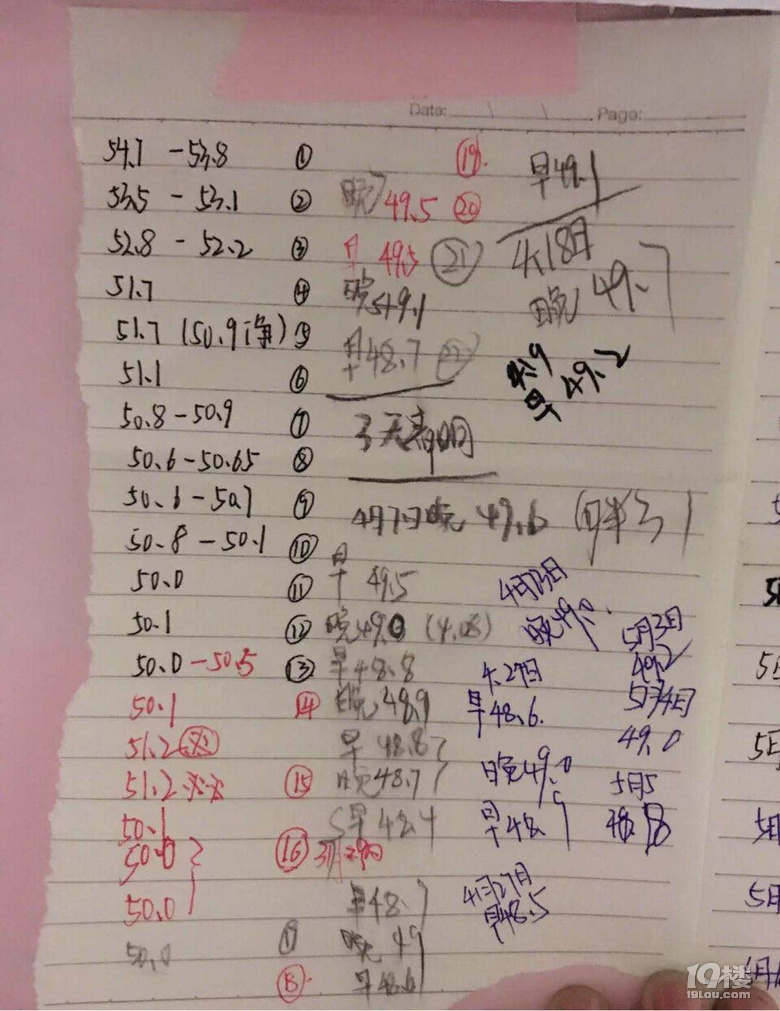 Date: Page:
54.1 - 53.8 ①
53.5 - 53.1 ②
52.8 - 52.2 ③
51.7 ④
51.7 (50.9净) ⑤
51.1 ⑥
50.8 - 50.9 ⑦
50.6 - 50.65 ⑧
50.6 - 50.7 ⑨
50.8 - 50.1 ⑩
50.0 ⑪
50.1 ⑫
50.0 - 50.5 ⑬
50.1 ⑭
51.2
51.2 ⑮
50.1
50.0 ⑯
50.0
50.0
⑲
晚 49.5 ⑳
早 49.5 ㉑
晚 49.1
早 48.7 ㉒
3天
4月7日晚 49.6
早 49.5
晚 49.0 (4.08)
早 48.8
晚 48.9
早 48.8
晚 48.7
早 48.4
早 48.7
晚 49
早 48.6
早 49.1
4.18日
晚 49.7
4.19
早 49.2
晚 49.0
4.27日
早 48.6
晚 49.0
早 48.9
4月27日
早 48.5
5月3日
49.2
5月4日
49.0
5月5
48.8
19楼
19lou.com